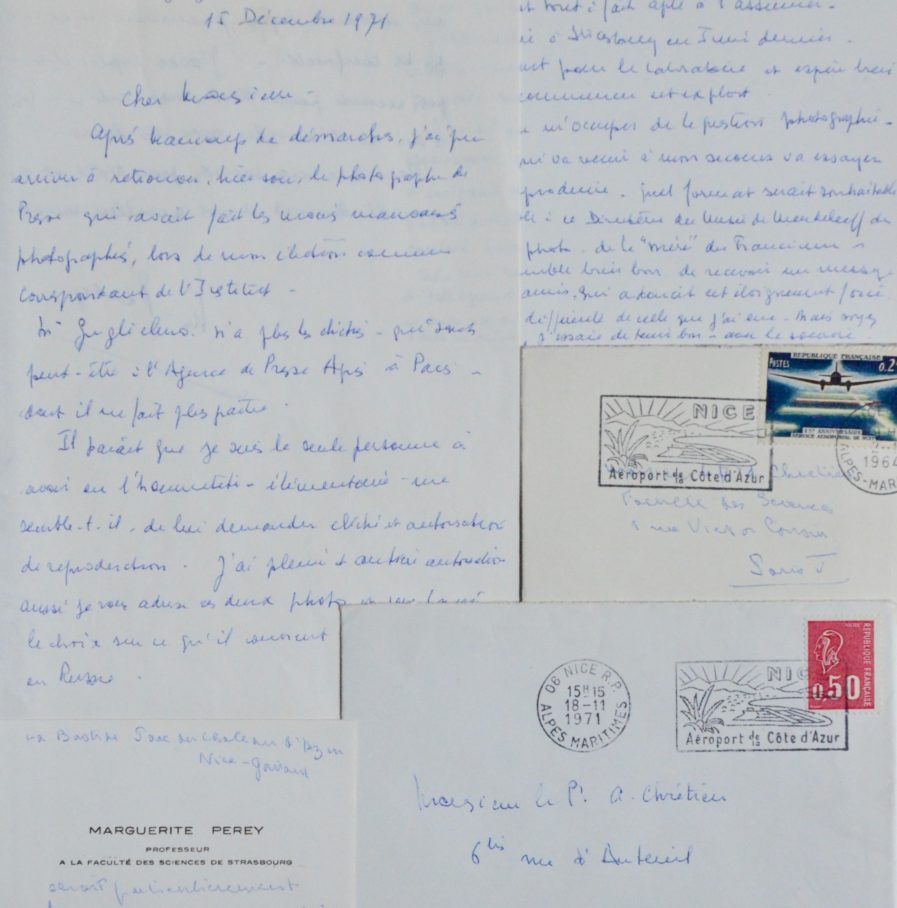 15 Décembre 1971
Cher Monsieur.
Après beaucoup de démarches, j'ai pu
arriver à retrouver, hier soir, le photographe de
Presse qui avait fait les
photographies, lors de mon élection comme
correspondant de l'Institut.
Mr n'a plus les clichés - 
peut-être à l'Agence de Presse à Paris -
dont il ne fait plus partie.
Il paraît que je suis la seule personne à
avoir eu l'honnêteté - élémentaire - me
semble-t-il - de lui demander cliché et autorisation
de reproduction. J'ai pleine et entière autorisation
aussi je vous adresse ces deux photos
le choix sur ce qu'il convient
en Russie.
tout à fait apte à l'assumer.
à Strasbourg en Juin dernier.
pour le Laboratoire et espère bien
m'occuper de la question photographie -
qui va venir à mon secours va essayer
quel format serait souhaitable
à ce Directeur du Musée de Mendeleeff
photo - de la "mère" du Francium -
semble très bon de recevoir un message
amis, qui adoucit cet éloignement forcé
difficile de celle que j'ai eue. Mais soyez
j'essaie de tenir bon -
RÉPUBLIQUE FRANÇAISE
POSTES 0.2
SERVICE AÉROPOSTAL DE NUIT
NICE
Aéroport de la Côte d'Azur
1964
ALPES-MAR
Chrétien
Faculté des Sciences
1 rue Victor Cousin
Paris V
RÉPUBLIQUE FRANÇAISE
0,50
06 NICE R.P.
15H15
18-11
1971
ALPES MARITIMES
NICE
Aéroport de la Côte d'Azur
Monsieur le Pr A. Chrétien
6 bis rue d'Auteuil
Nice
MARGUERITE PEREY
PROFESSEUR
A LA FACULTÉ DES SCIENCES DE STRASBOURG
particulièrement